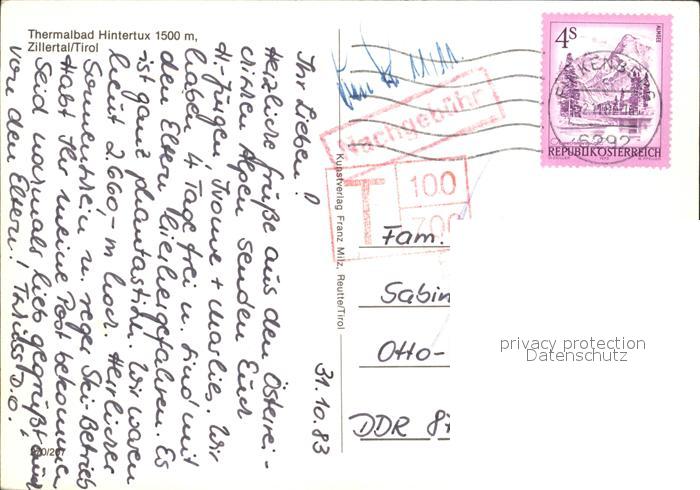 Thermalbad Hintertux 1500 m,
Zillertal/Tirol
31.10.83
Ihr Lieben!
Herzliche Grüße aus den Österrei-
chischen Alpen senden Euch
H.-Jürgen Ivonne + Marlies. Wir
haben 4 Tage frei u. sind mit
den Eltern hierhergefahren. Es
ist ganz phantastisch. Wir waren
heut 2.660,-m hoch. Herrlicher
Sonnenschein u. reger Ski-Betrieb
Habt Ihr meine Post bekommen
Seid nochmals lieb gegrüßt auch
von den Eltern!
Kunstverlag Franz Milz, Reutte/Tirol
Nachgebühr
T 100
700
4S
ALMSEE
6292
REPUBLIK ÖSTERREICH
Fam.
Sabin
Otto-
DDR
privacy protection
Datenschutz